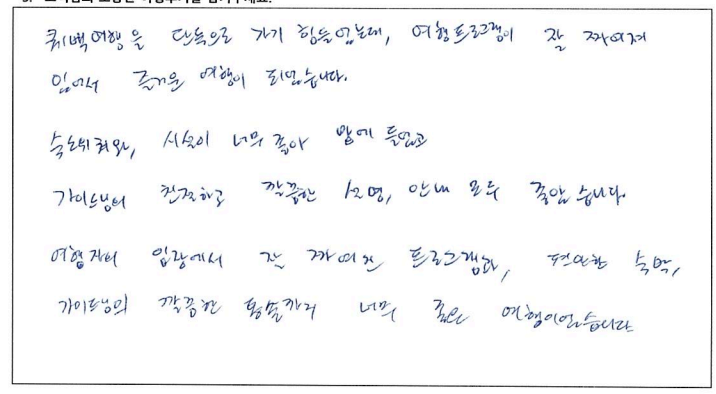 퀘벡여행을 단독으로 가기 힘들었는데, 여행프로그램이 잘 짜여져
있어서 즐거운 여행이 되었습니다.
시설이 너무 좋아 맘에 들었고
가이드님의 친절하고 깔끔한 설명, 안내 모두 좋았습니다.
여행자의 입장에서 잘 짜여진 프로그램과, 편안한 숙박,
가이드님의 깔끔한 까지 너무 좋은 여행이었습니다